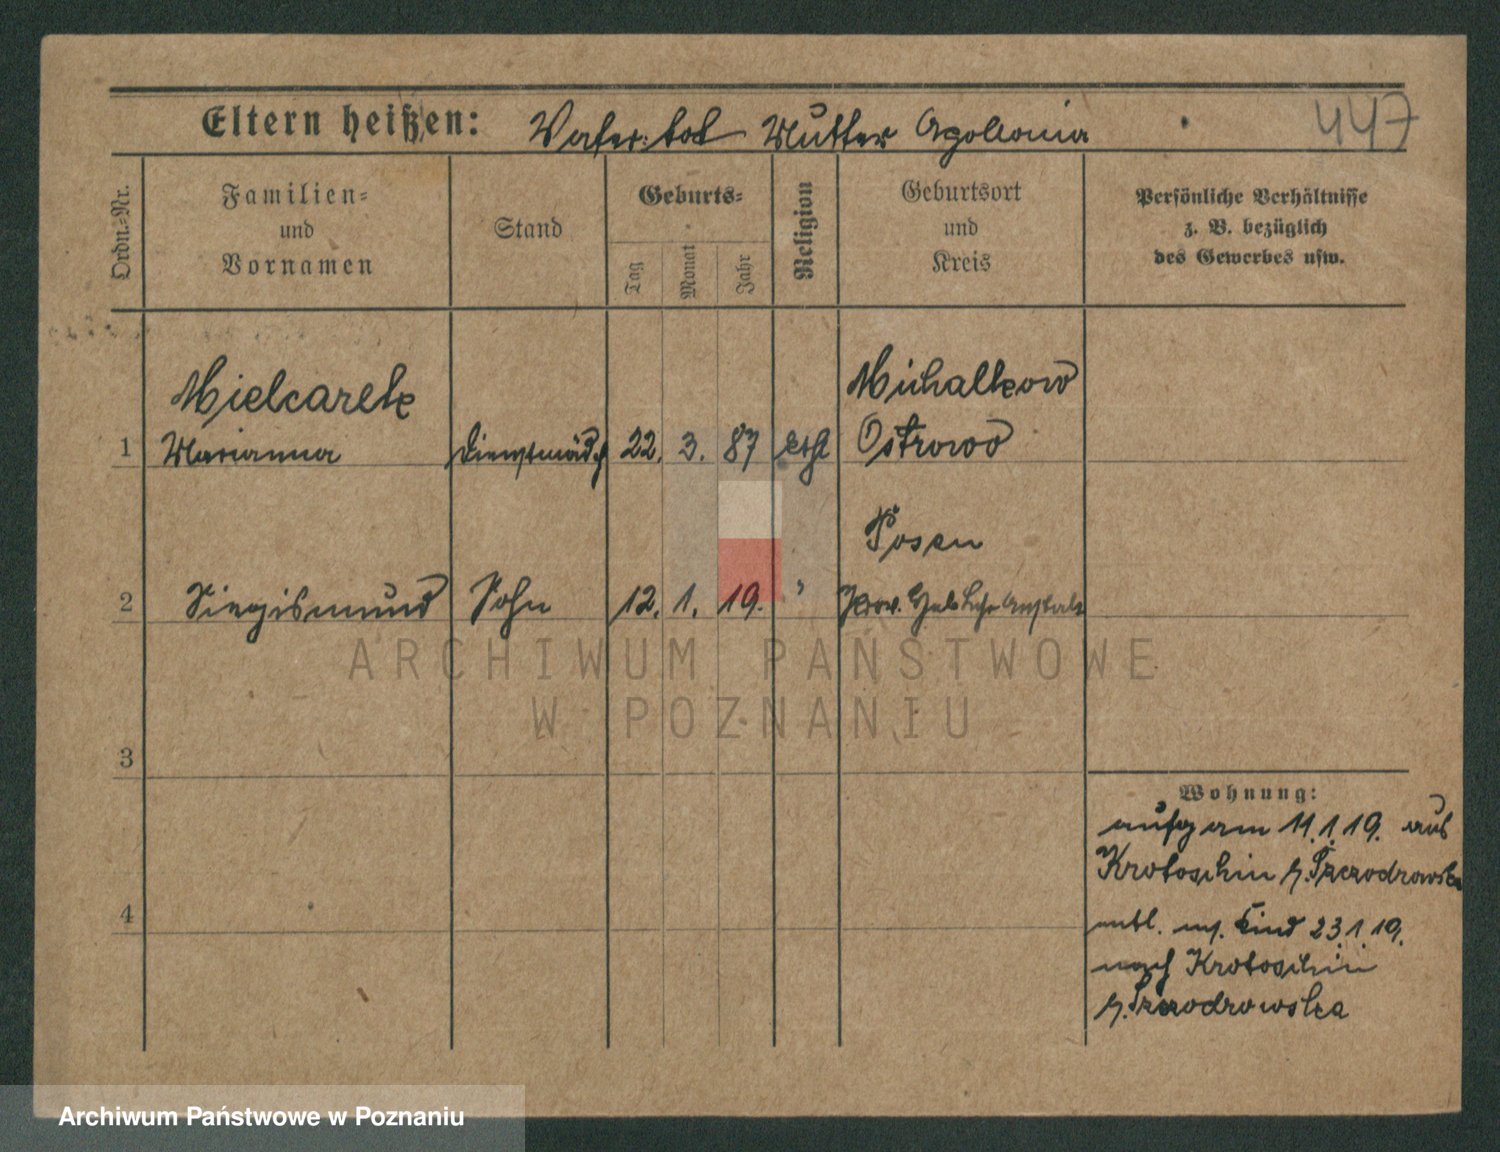 Eltern heißen: Vater: tot Mutter Apollonia
447
Ordn.-Nr.
Familien-
und
Vornamen
Stand
Geburts-
Tag
Monat
Jahr
Religion
Geburtsort
und
Kreis
Persönliche Verhältnisse
z. B. bezüglich
des Gewerbes usw.
Mielcarek
Michalkow
1 Marianna Dienstmädch 22. 3. 87 kthl Ostrowo
Posen
2 Siegismund Sohn 12. 1. 19. " Prov. Heb Lehr Anstalt
ARCHIWUM PAŃSTWOWE
W POZNANIU
3
Wohnung:
aufg am 11.1.19. aus
Krotoschin z. Szczodrowska
4
entl. m. Kind 23.1.19.
nach Krotoschin
z. Szczodrowska
Archiwum Państwowe w Poznaniu